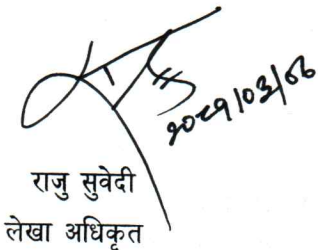 २०८१/०३/०६
राजु सुवेदी
लेखा अधिकृत